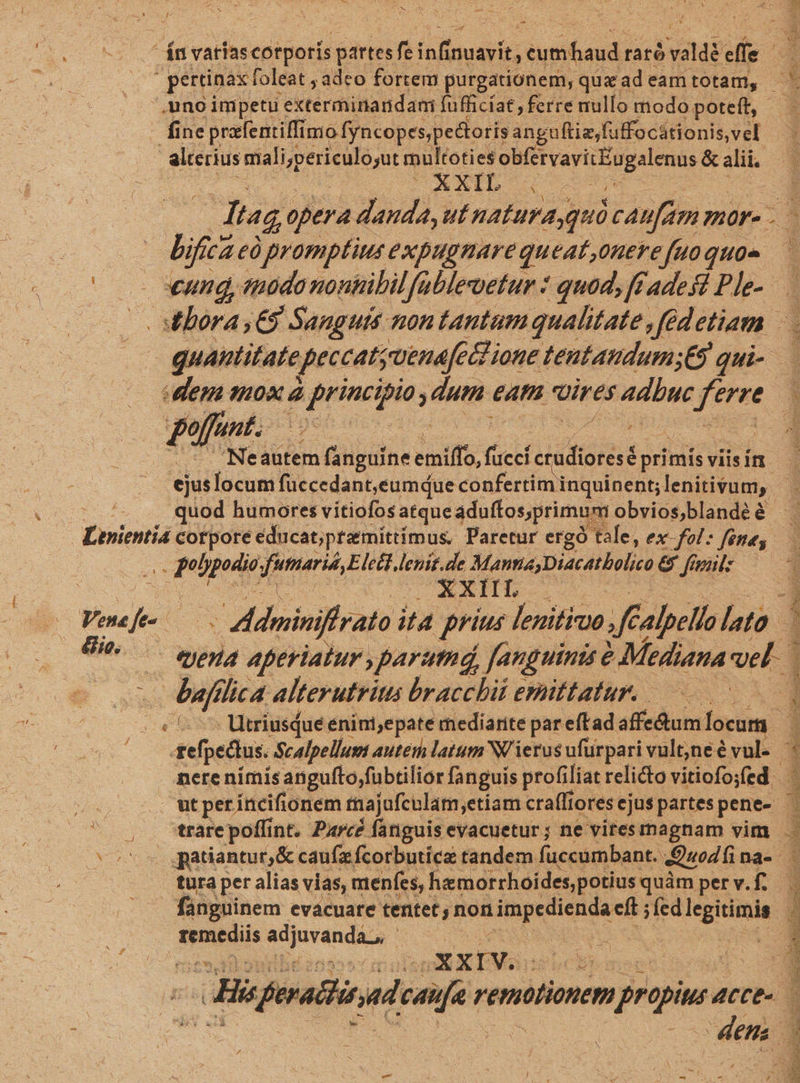 in varias corporis partes ſe inſinuavit, cum haud rarò valdè eſſe
pertinax ſoleat, adeo fortem purgationem, quæ ad eam totam,
uno impetu exterminandam ſufficiat, ferre nullo modo poteſt,
ſine præſentiſſimo ſyncopes, pectoris anguſtiæ, ſuffocationis, vel
alterius mali, periculo, ut multoties obſervavit Eugalenus & alii.
XXII.
Itaq; opera danda, ut natura, quò cauſam mor-
bificã eò promptius expugnare queat, onere ſuo quo-
cunq; modo nonnihil ſublevetur: quod, ſi adeſt Ple-
thora, & Sanguis non tantum qualitate, ſed etiam
quantitate peccat, venæſectione tentandum; & qui-
dem mox à principio, dum eam vires adhuc ferre
poſſunt.
Ne autem ſanguine emiſſo, ſucci crudiores è primis viis in
ejus locum ſuccedant, eumque confertim inquinent; lenitivum,
quod humores vitioſos atque aduſtos, primum obvios, blandè è
Lenientia corpore educat, præmittimus. Paretur ergò tale, ex fol: ſenæ,
polypodio, fumariâ, Elect. lenit. de Manna, Diacatholico & ſimil:
XXIII.
Venæ ſe- Adminiſtrato ita prius lenitivo, ſcalpello lato
ctio. vena aperiatur, parumq; ſanguinis è Mediana vel
baſilica alterutrius bracchii emittatur.
Utriusque enim, epate mediante par eſt ad affectum locum
reſpectus. Scalpellum autem latum Wierus uſurpari vult, ne è vul-
nere nimis anguſto, ſubtilior ſanguis proſiliat relicto vitioſo; ſed
ut per inciſionem majuſculam, etiam craſſiores ejus partes pene-
trare poſſint. Parcè ſanguis evacuetur; ne vires magnam vim
patiantur, & cauſæ ſcorbuticæ tandem ſuccumbant. Quod ſi na-
tura per alias vias, menſes, hæmorrhoides, potius quàm per v. ſ.
ſanguinem evacuare tentet, non impedienda eſt; ſed legitimis
remediis adjuvanda.
XXIV.
His peractis, ad cauſæ remotionem propius acce-
dens